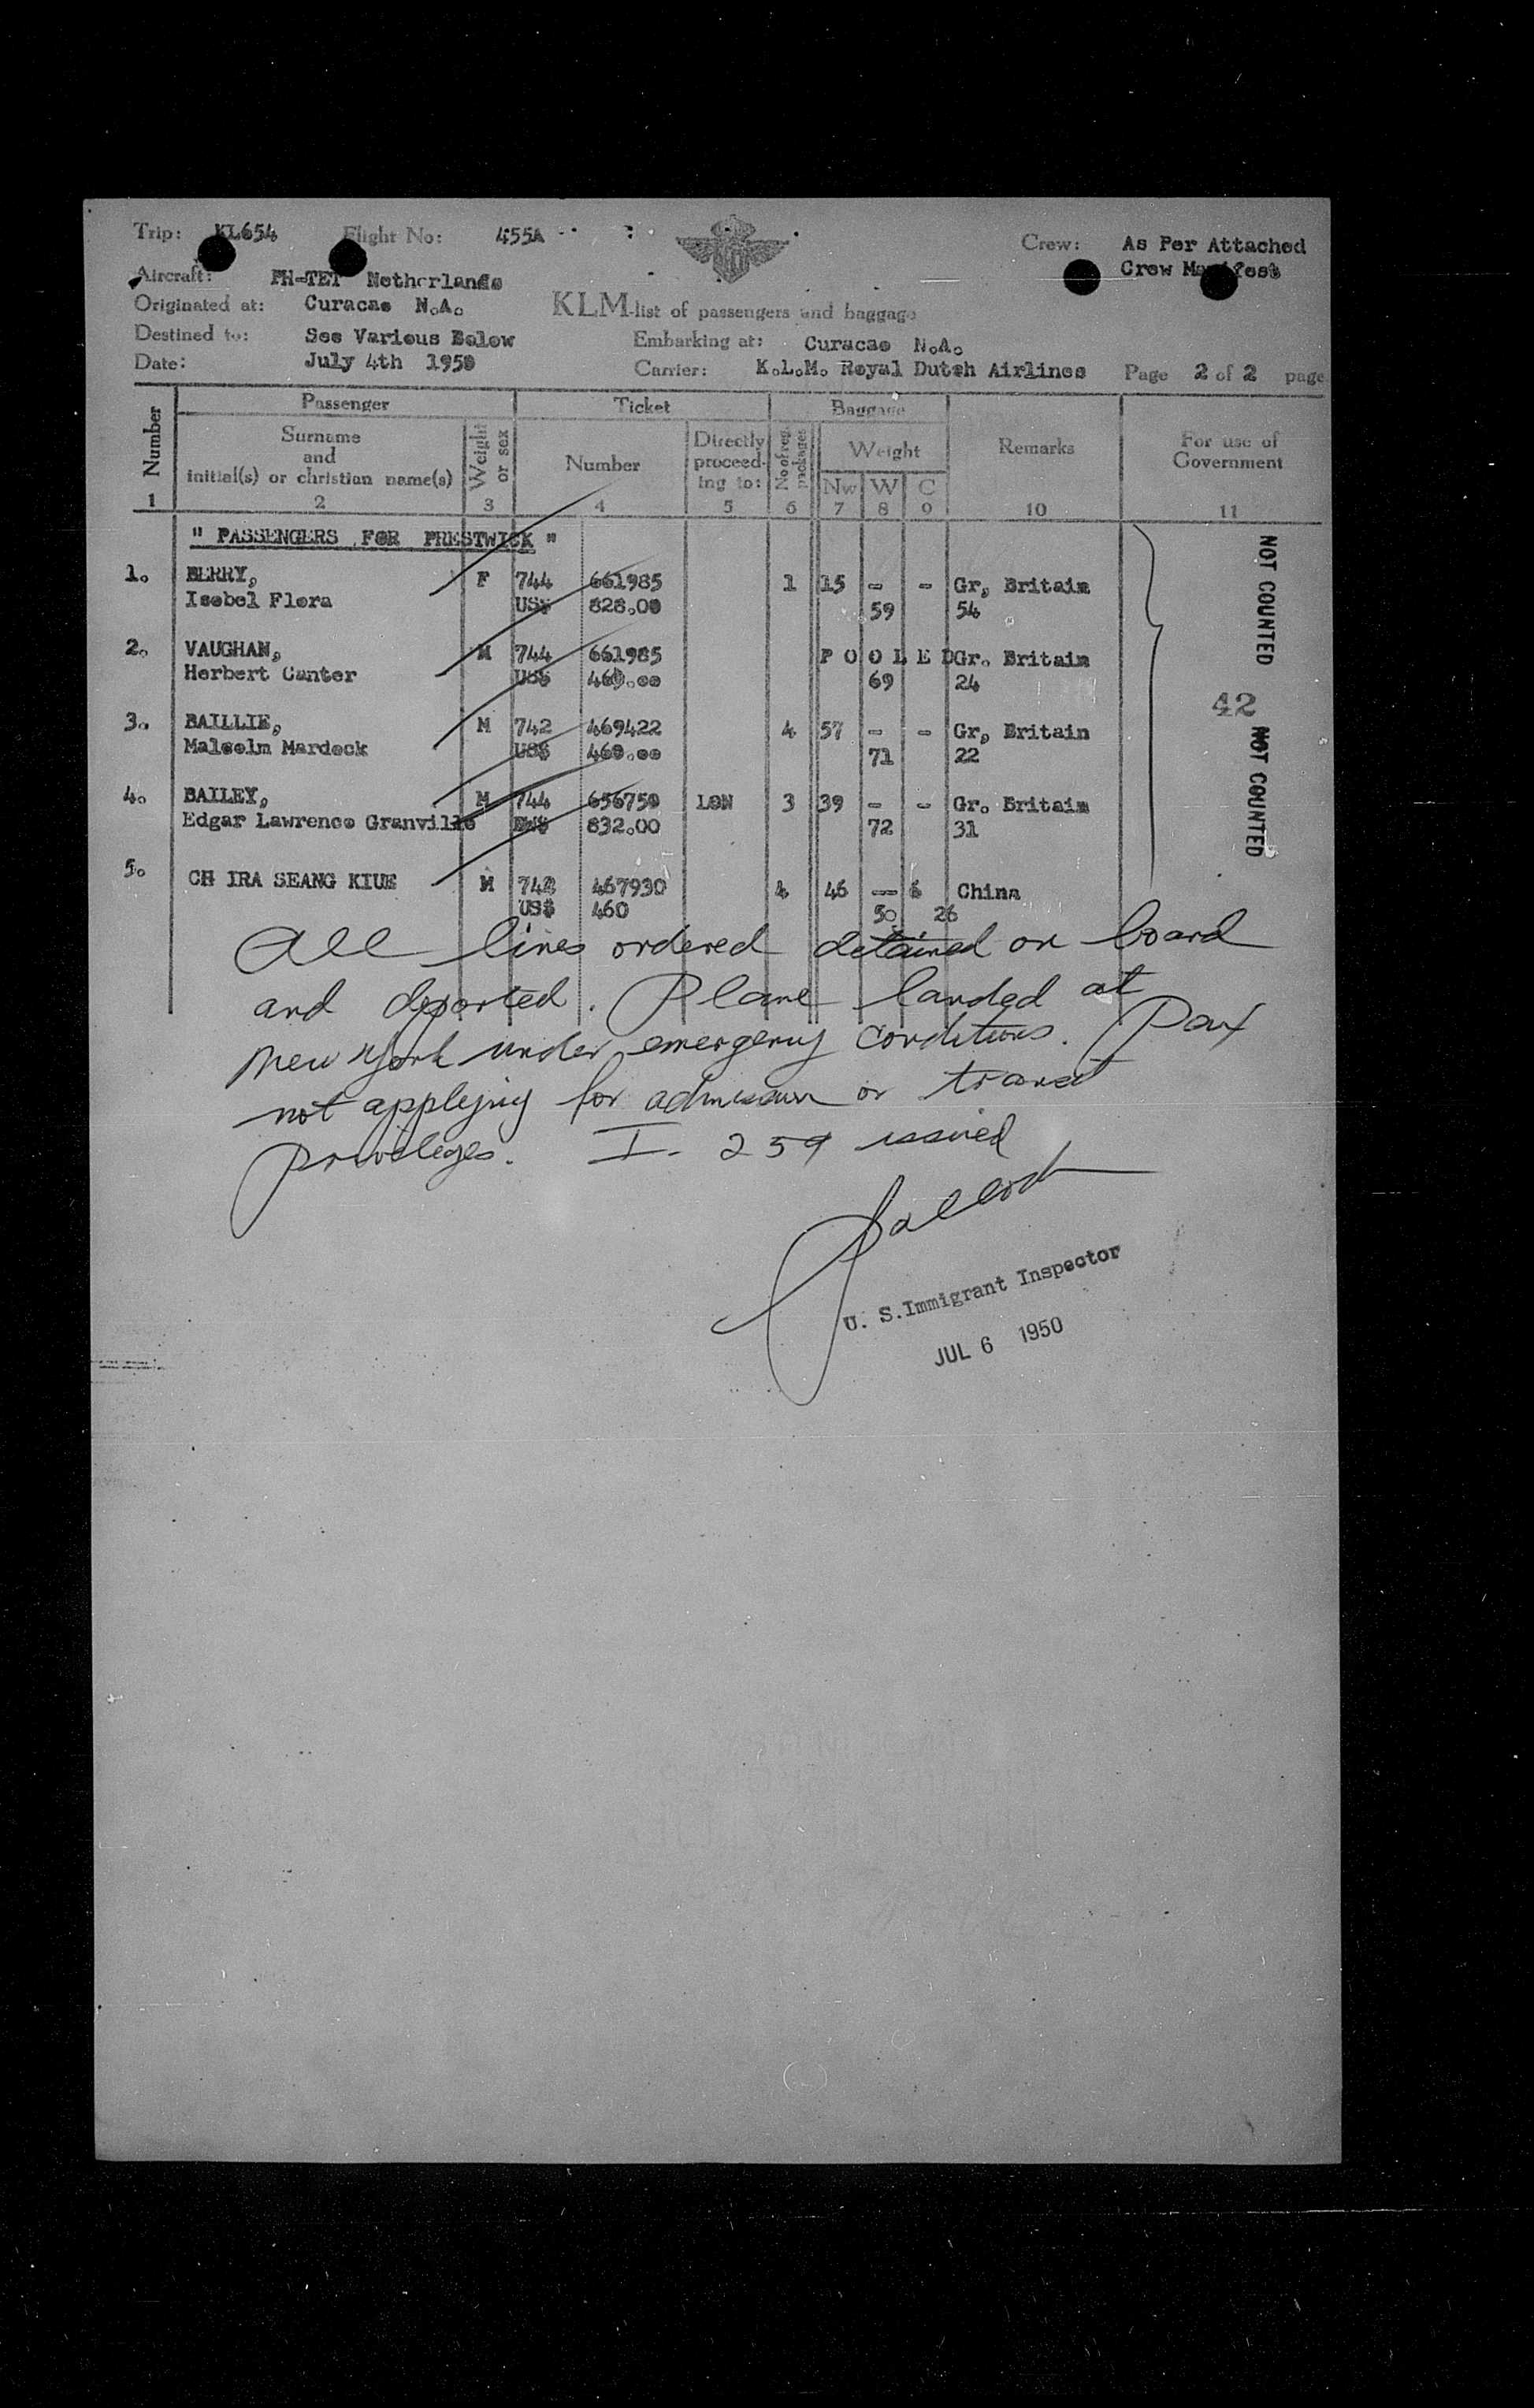 Trip: KL654 Flight No: 455A Crew: As Per Attached
Crew Manifest
Aircraft: PH-TET Netherlands
Originated at: Curacao N.A. KLM-list of passengers and baggage
Destined to: See Various Below Embarking at: Curacao N.A.
Date: July 4th 1950 Carrier: K.L.M. Royal Dutch Airlines Page 2 of 2 page
Passenger Ticket Baggage
Number Surname and initial(s) or christian name(s) Weight or sex Number Directly proceeding to: No of reg. packages Weight Remarks For use of Government
Nw W C
1 2 3 4 5 6 7 8 9 10 11
" PASSENGERS FOR PRESTWICK "
1. BERRY, F 744 661985 1 15 - - Gr, Britain
Isobel Flora US$ 828.00 59 54
2. VAUGHAN, M 744 661985 P O O L E D Gr. Britain
Herbert Canter US$ 460.00 69 24
3. BAILLIE, M 742 469422 4 57 - - Gr, Britain
Malcolm Mardock US$ 460.00 71 22
4. BAILEY, M 744 656750 LON 3 39 - - Gr. Britain
Edgar Lawrence Granville 832.00 72 31
5. CH IRA SEANG KIUE M 742 467930 4 46 — China
US$ 460 50 26
NOT COUNTED
42
NOT COUNTED
All lines ordered detained on board
and deported. Plane landed at
New York under emergency conditions. Pax
not applying for admission or transit
privileges. I-259 issued
U. S. Immigrant Inspector
JUL 6 1950